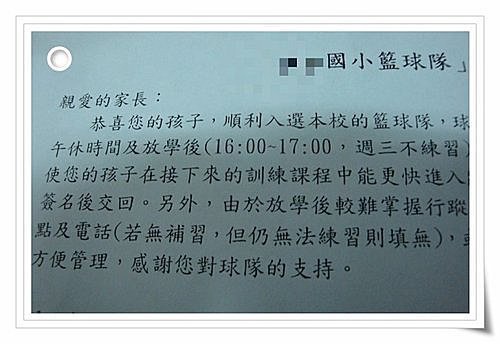 國小籃球隊」
親愛的家長：
恭喜您的孩子，順利入選本校的籃球隊，球
午休時間及放學後(16:00~17:00，週三不練習)
使您的孩子在接下來的訓練課程中能更快進入
簽名後交回。另外，由於放學後較難掌握行蹤
點及電話(若無補習，但仍無法練習則填無)，
方便管理，感謝您對球隊的支持。